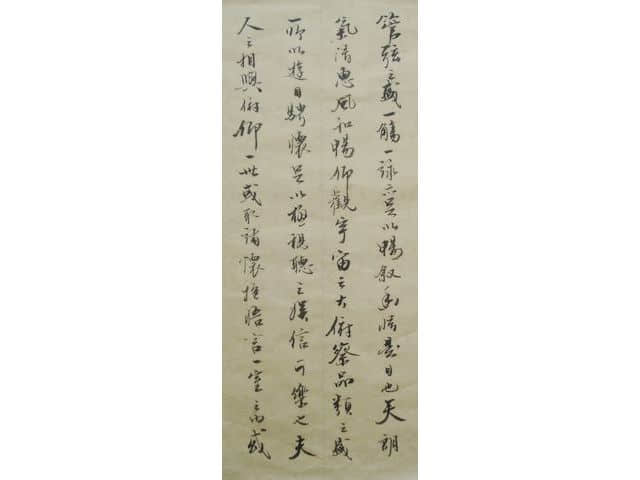 管弦之盛一觴一詠亦足以暢敘幽情是日也天朗
氣清惠風和暢仰觀宇宙之大俯察品類之盛
所以遊目騁懷足以極視聽之娛信可樂也夫
人之相與俯仰一世或取諸懷抱悟言一室之內或